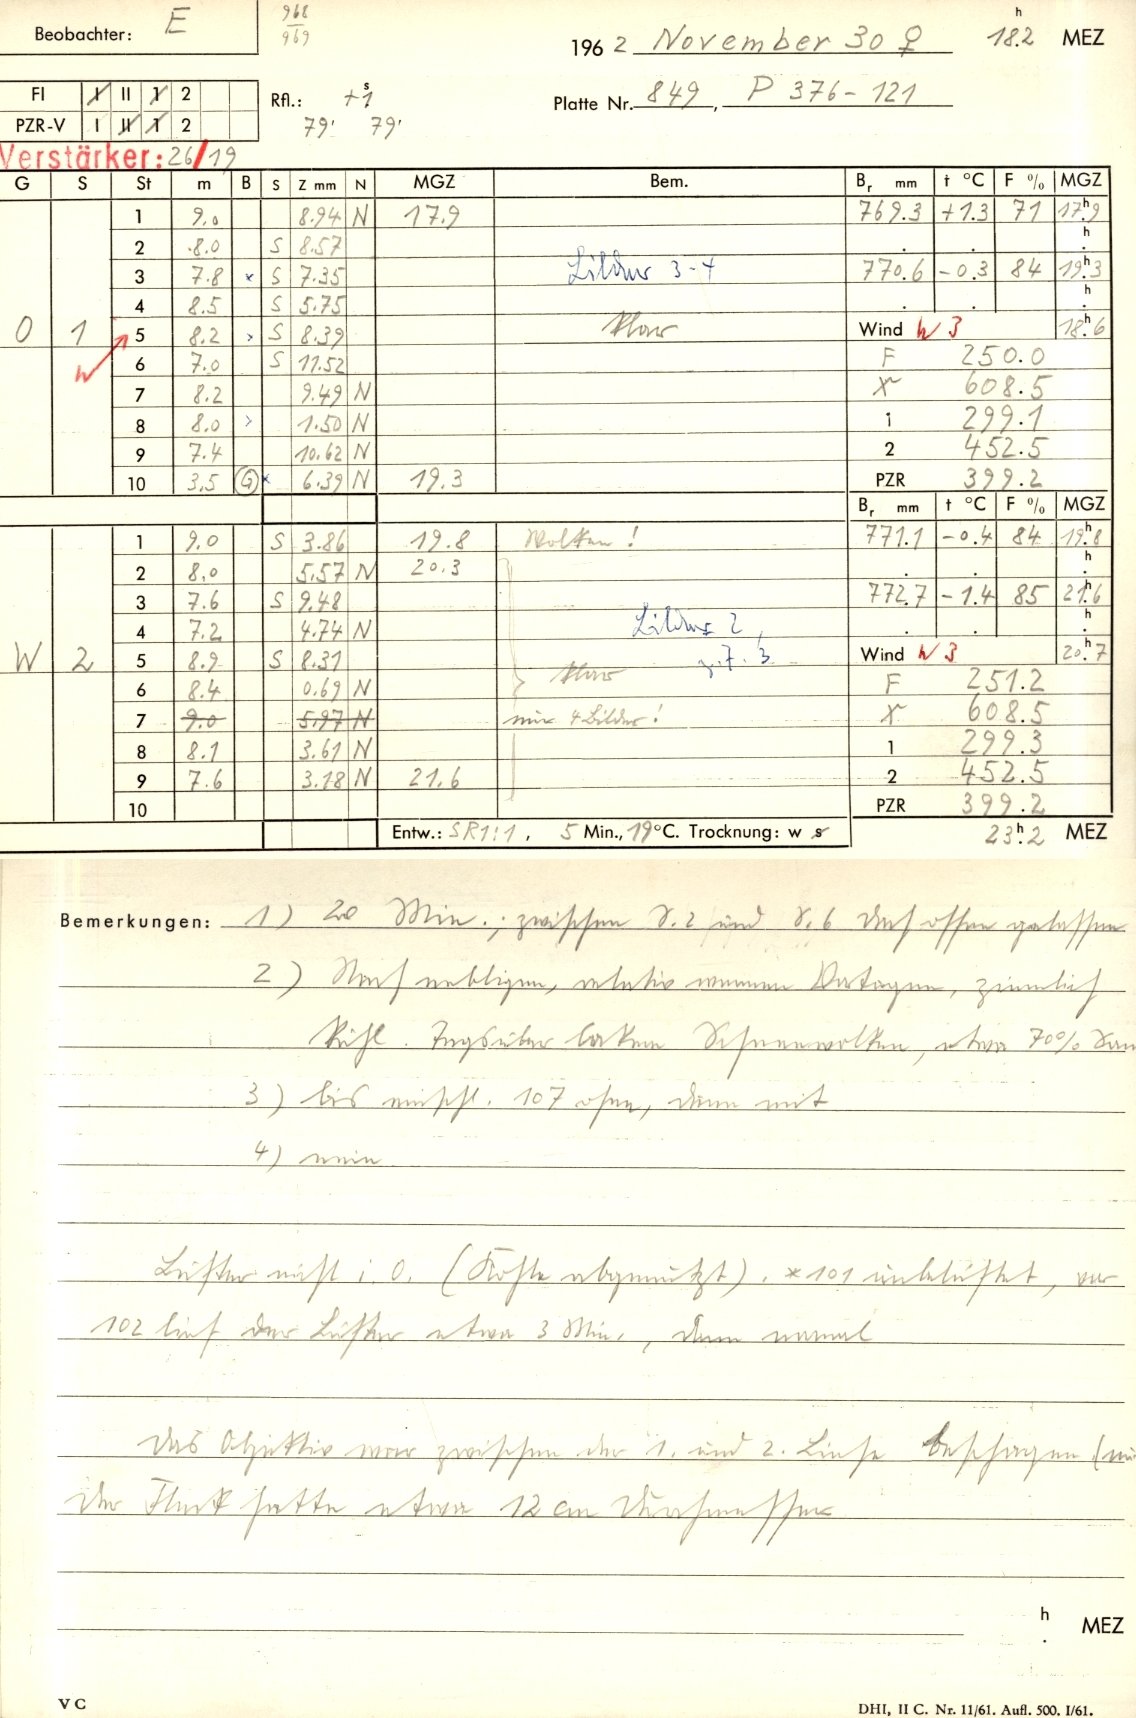 Beobachter: E
968
969
196 2 November 30 ♀ 18.2 h MEZ
FI I II 1 2
PZR-V I II 1 2
Rfl.: +1 s
79' 79'
Platte Nr. 849, P 376-121
Verstärker: 26/19
G S St m B S Z mm N MGZ Bem. Br mm t °C F % MGZ
1 9.0 8.94 N 17.9 769.3 +1.3 71 17.9 h
2 8.0 S 8.57 h
3 7.8 * S 7.35 Bilder 3-4 770.6 -0.3 84 19.3 h
4 8.5 S 5.75 h
O 1 5 8.2 > S 8.39 klar Wind W 3 18.6 h
W
6 7.0 S 11.52 F 250.0
7 8.2 9.49 N 608.5
8 8.0 > 1.50 N 1 299.1
9 7.4 10.62 N 2 452.5
10 3.5 G * 6.39 N 19.3 PZR 399.2
Br mm t °C F % MGZ
1 9.0 S 3.86 19.8 Wolken! 771.1 -0.4 84 19.8 h
2 8.0 5.57 N 20.3 h
3 7.6 S 9.48 772.7 -1.4 85 21.6 h
4 7.2 4.74 N Bilder 2, h
W 2 5 8.9 S 8.31 z.T. 3 Wind W 3 20.7 h
6 8.4 0.69 N klar F 251.2
7 9.0 5.97 N nur 4 Bilder! 608.5
8 8.1 3.61 N 1 299.3
9 7.6 3.18 N 21.6 2 452.5
10 PZR 399.2
Entw.: SR 1:1, 5 Min., 19°C. Trocknung: w s 23.2 h MEZ
Bemerkungen: 1) 20 Min.; zwischen S.2 und S.6 Dach offen gelassen
2) Nach nebligen, relativ warmen Vortagen, ziemlich
kühl. Tagsüber lockere Schneewolken, etwa 70%
3) bis einschl. 107 ohne, dann mit
4) nein
Lüfter nicht i.O. (Kohle abgenutzt). *101 unbelüftet, vor
102 lief der Lüfter etwa 3 Min., dann normal
Das Objektiv war zwischen der 1. und 2. Linse beschlagen
Der Fleck hatte etwa 12 cm Durchmesser
h
MEZ
V C
DHI, II C. Nr. 11/61. Aufl. 500. I/61.